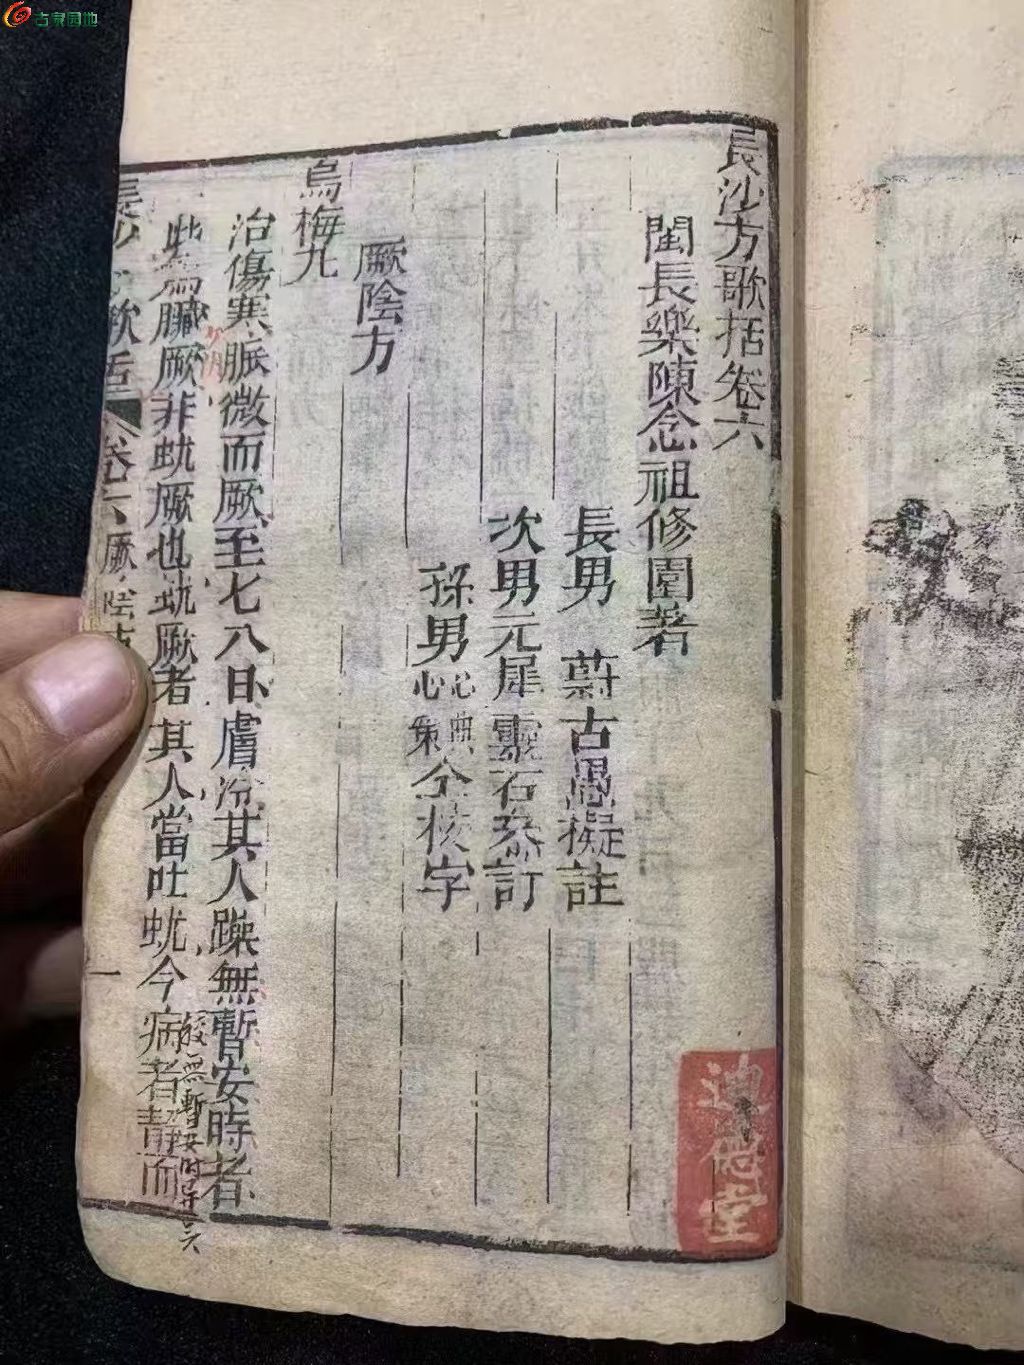 古泉园地
長沙方歌括卷六
閩長樂陳念祖修園著
長男 蔚古愚擬註
次男元犀靈石叅訂
孫男心典
心蘭仝校字
厥陰方
烏梅丸
治傷寒脈微而厥至七八日膚冷其人躁無暫安時者
此為臟厥非蚘厥也蚘厥者其人當吐蚘今病者靜而
長沙方歌括 卷六厥陰方 一
堂